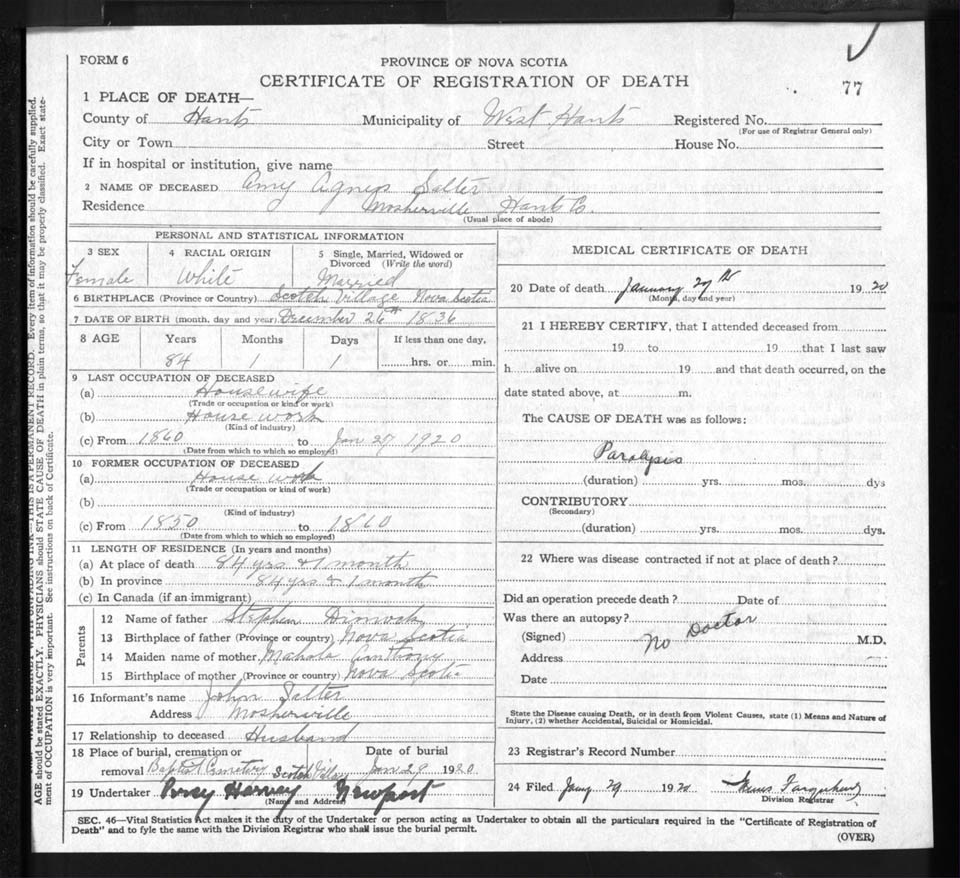 FORM 6
PROVINCE OF NOVA SCOTIA
CERTIFICATE OF REGISTRATION OF DEATH
77
1 PLACE OF DEATH—
County of Hants Municipality of West Hants Registered No.
(For use of Registrar General only)
City or Town Street House No.
If in hospital or institution, give name
2 NAME OF DECEASED Amy Agnes Salter
Residence Mosherville Hants Co.
(Usual place of abode)
PERSONAL AND STATISTICAL INFORMATION
3 SEX 4 RACIAL ORIGIN 5 Single, Married, Widowed or Divorced (Write the word)
Female White Married
6 BIRTHPLACE (Province or Country) Scotch Village Nova Scotia
7 DATE OF BIRTH (month, day and year) December 26th 1836
8 AGE Years Months Days If less than one day,
84 1 1 hrs. or min.
9 LAST OCCUPATION OF DECEASED
(a) Housewife
(Trade or occupation or kind of work)
(b) House work
(Kind of industry)
(c) From 1860 to Jan 27 1920
(Date from which to which so employed)
10 FORMER OCCUPATION OF DECEASED
(a) House work
(Trade or occupation or kind of work)
(b)
(Kind of industry)
(c) From 1850 to 1860
(Date from which to which so employed)
11 LENGTH OF RESIDENCE (In years and months)
(a) At place of death 84 yrs & 1 month
(b) In province 84 yrs & 1 month
(c) In Canada (if an immigrant)
Parents
12 Name of father Stephen Dimock
13 Birthplace of father (Province or country) Nova Scotia
14 Maiden name of mother Mahala Anthony
15 Birthplace of mother (Province or country) Nova Scotia
16 Informant's name John Salter
Address Mosherville
17 Relationship to deceased Husband
18 Place of burial, cremation or Date of burial
removal Baptist Cemetery Scotch Village Jan 29 1920
19 Undertaker Percy Harvey Newport
(Name and Address)
MEDICAL CERTIFICATE OF DEATH
20 Date of death January 27th 1920
(Month, day and year)
21 I HEREBY CERTIFY, that I attended deceased from
19 to 19 that I last saw
h alive on 19 and that death occurred, on the
date stated above, at m.
The CAUSE OF DEATH was as follows:
Paralysis
(duration) yrs. mos. dys
CONTRIBUTORY
(Secondary)
(duration) yrs. mos. dys.
22 Where was disease contracted if not at place of death?
Did an operation precede death? Date of
Was there an autopsy?
(Signed) No Doctor M.D.
Address
Date
State the Disease causing Death, or in death from Violent Causes, state (1) Means and Nature of
Injury, (2) whether Accidental, Suicidal or Homicidal.
23 Registrar's Record Number
24 Filed Jany 29 1920
Division Registrar
SEC. 46—Vital Statistics Act makes it the duty of the Undertaker or person acting as Undertaker to obtain all the particulars required in the "Certificate of Registration of
Death" and to fyle the same with the Division Registrar who shall issue the burial permit.
(OVER)
INK—THIS IS A PERMANENT RECORD. Every item of information should be carefully supplied.
AGE should be stated EXACTLY. PHYSICIANS should STATE CAUSE OF DEATH in plain terms, so that it may be properly classified. Exact state-
ment of OCCUPATION is very important. See instructions on back of Certificate.